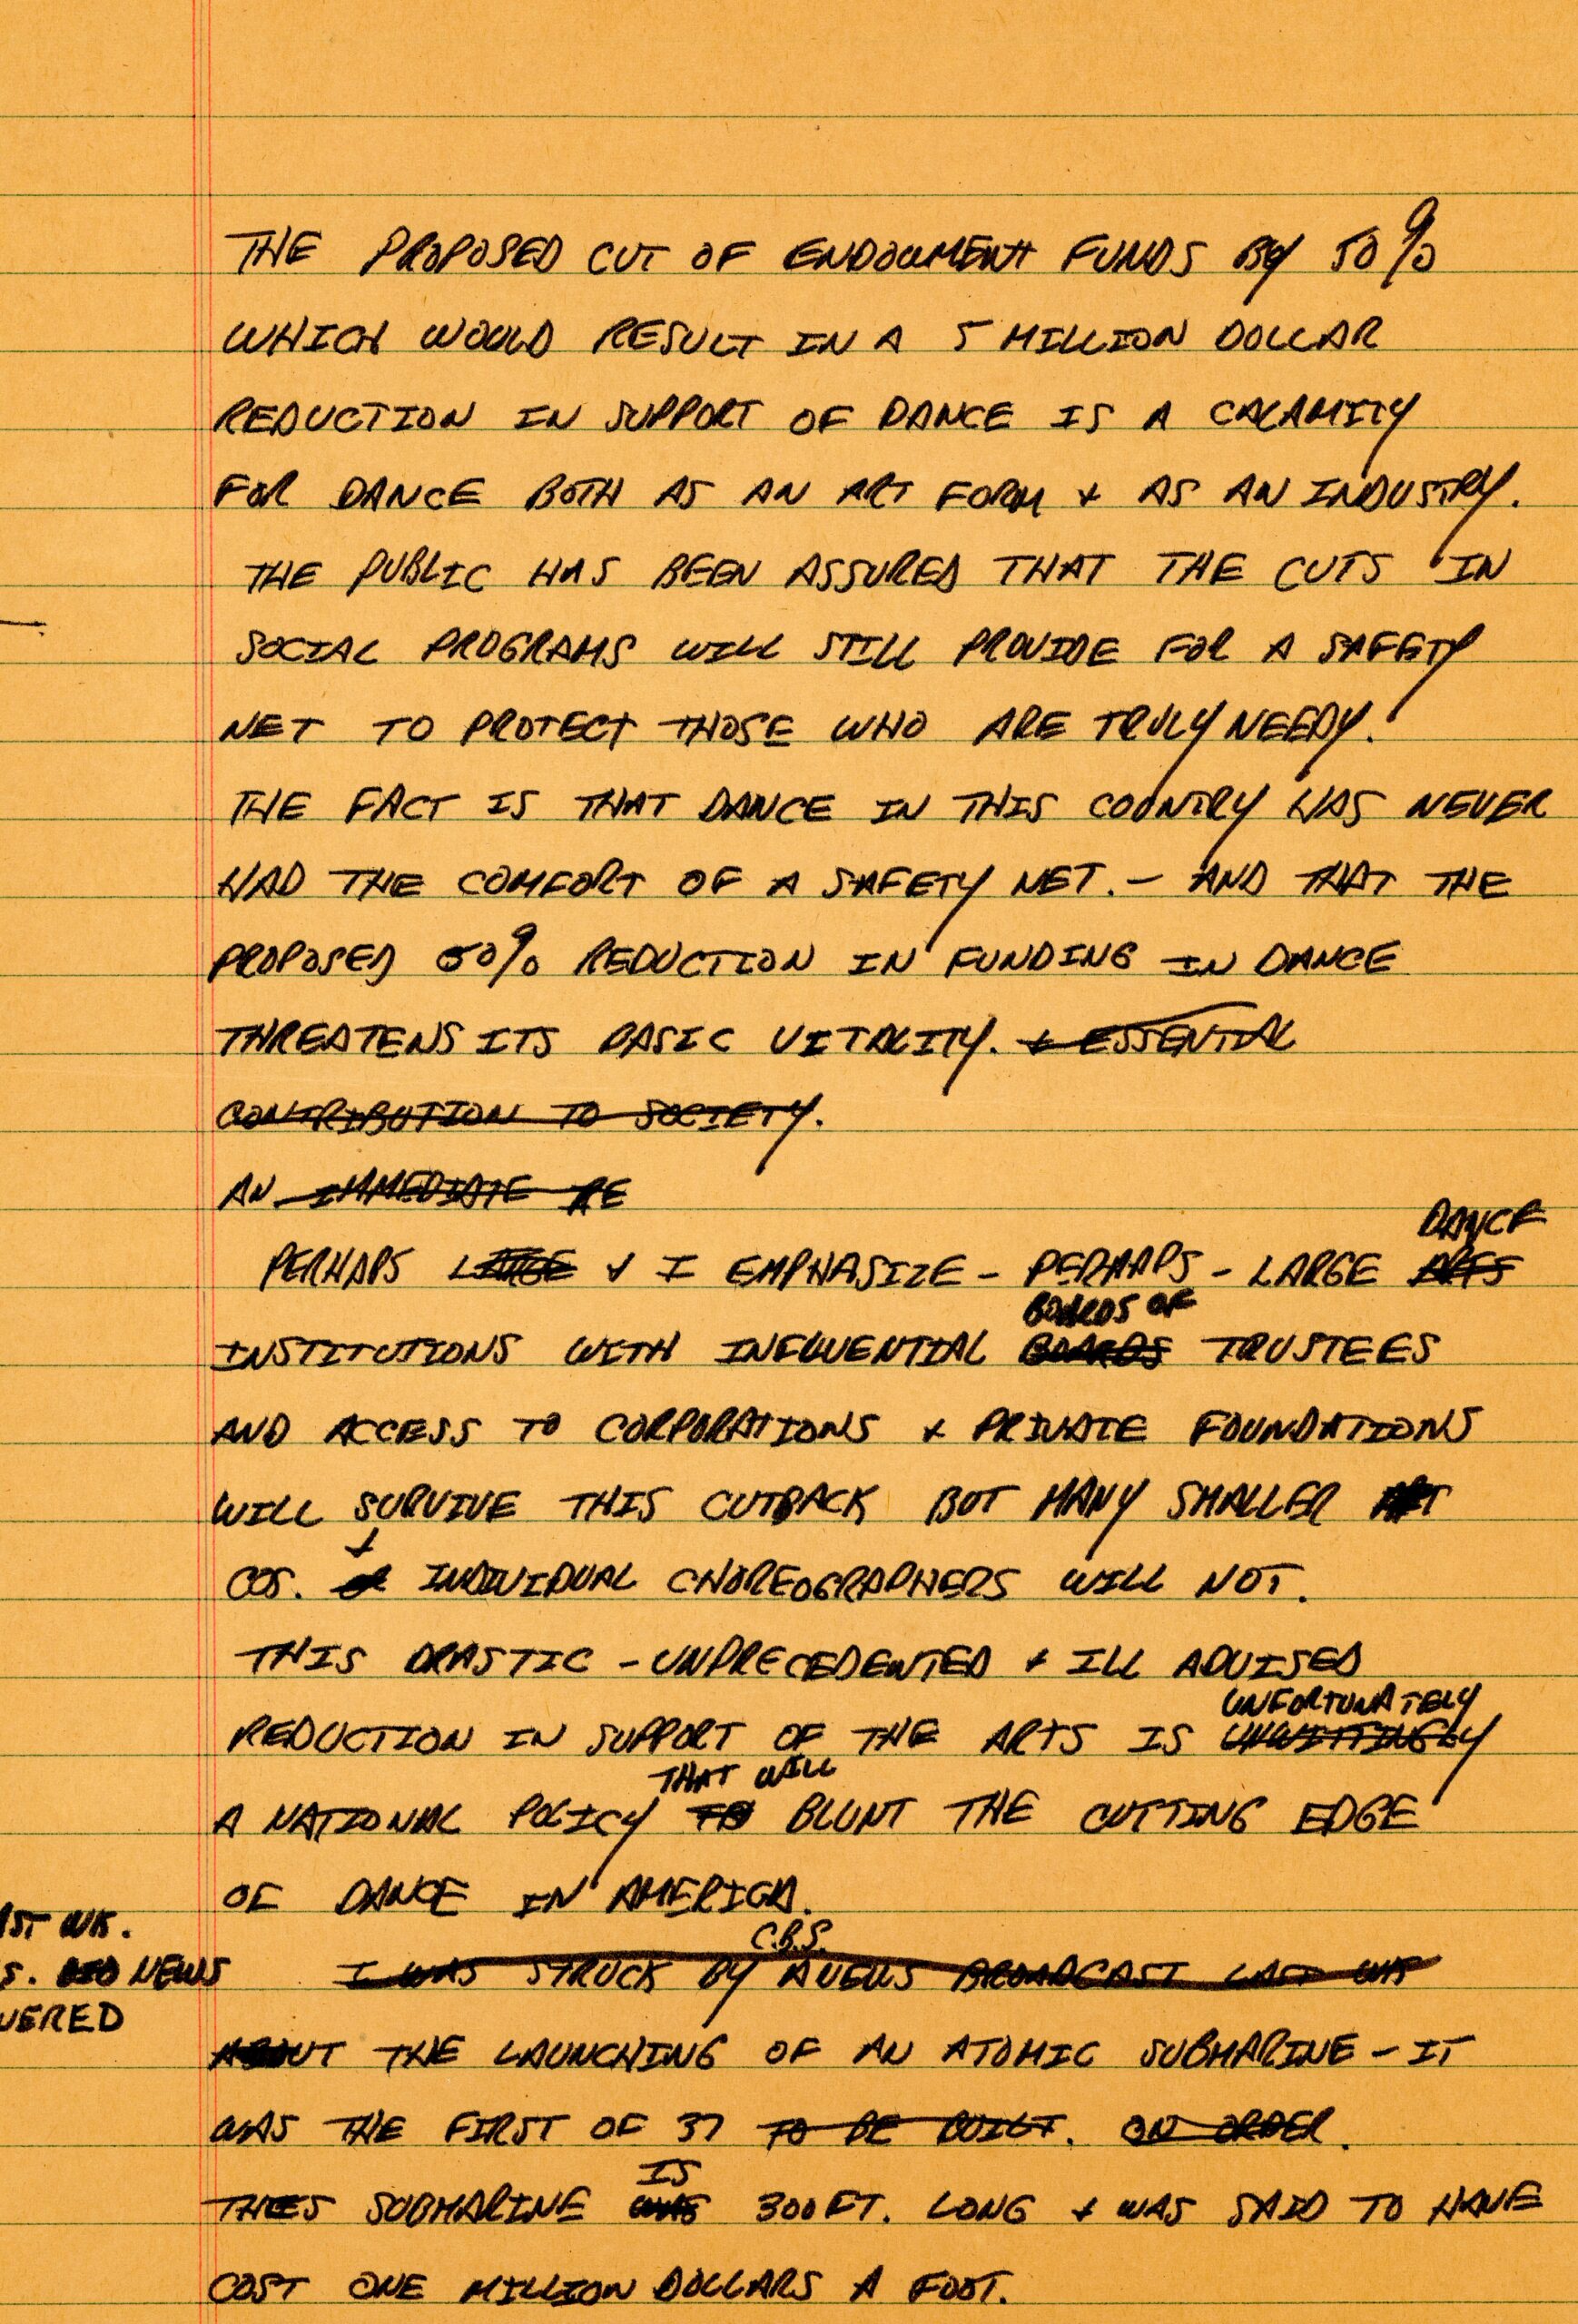 THE PROPOSED CUT OF ENDOWMENT FUNDS BY 50%
WHICH WOULD RESULT IN A 5 MILLION DOLLAR
REDUCTION IN SUPPORT OF DANCE IS A CALAMITY
FOR DANCE BOTH AS AN ART FORM + AS AN INDUSTRY.
THE PUBLIC HAS BEEN ASSURED THAT THE CUTS IN
SOCIAL PROGRAMS WILL STILL PROVIDE FOR A SAFETY
NET TO PROTECT THOSE WHO ARE TRULY NEEDY.
THE FACT IS THAT DANCE IN THIS COUNTRY HAS NEVER
HAD THE COMFORT OF A SAFETY NET. - AND THAT THE
PROPOSED 50% REDUCTION IN FUNDING IN DANCE
THREATENS ITS BASIC VITALITY. + ESSENTIAL
CONTRIBUTION TO SOCIETY.
AN IMMEDIATE RE
DANCE
PERHAPS LARGE + I EMPHASIZE - PERHAPS - LARGE ARTS
BOARDS OF
INSTITUTIONS WITH INFLUENTIAL BOARDS TRUSTEES
AND ACCESS TO CORPORATIONS + PRIVATE FOUNDATIONS
WILL SURVIVE THIS CUTBACK BUT MANY SMALLER
+
COS. INDIVIDUAL CHOREOGRAPHERS WILL NOT.
THIS DRASTIC - UNPRECEDENTED + ILL ADVISED
UNFORTUNATELY
REDUCTION IN SUPPORT OF THE ARTS IS UNWITTINGLY
THAT WILL
A NATIONAL POLICY TO BLUNT THE CUTTING EDGE
OF DANCE IN AMERICA.
ST WK.
C.B.S.
S. NEWS I WAS STRUCK BY A NEWS BROADCAST LAST WK
VERED
ABOUT THE LAUNCHING OF AN ATOMIC SUBMARINE - IT
WAS THE FIRST OF 37 TO BE BUILT. ON ORDER.
IS
THIS SUBMARINE WAS 300 FT. LONG + WAS SAID TO HAVE
COST ONE MILLION DOLLARS A FOOT.